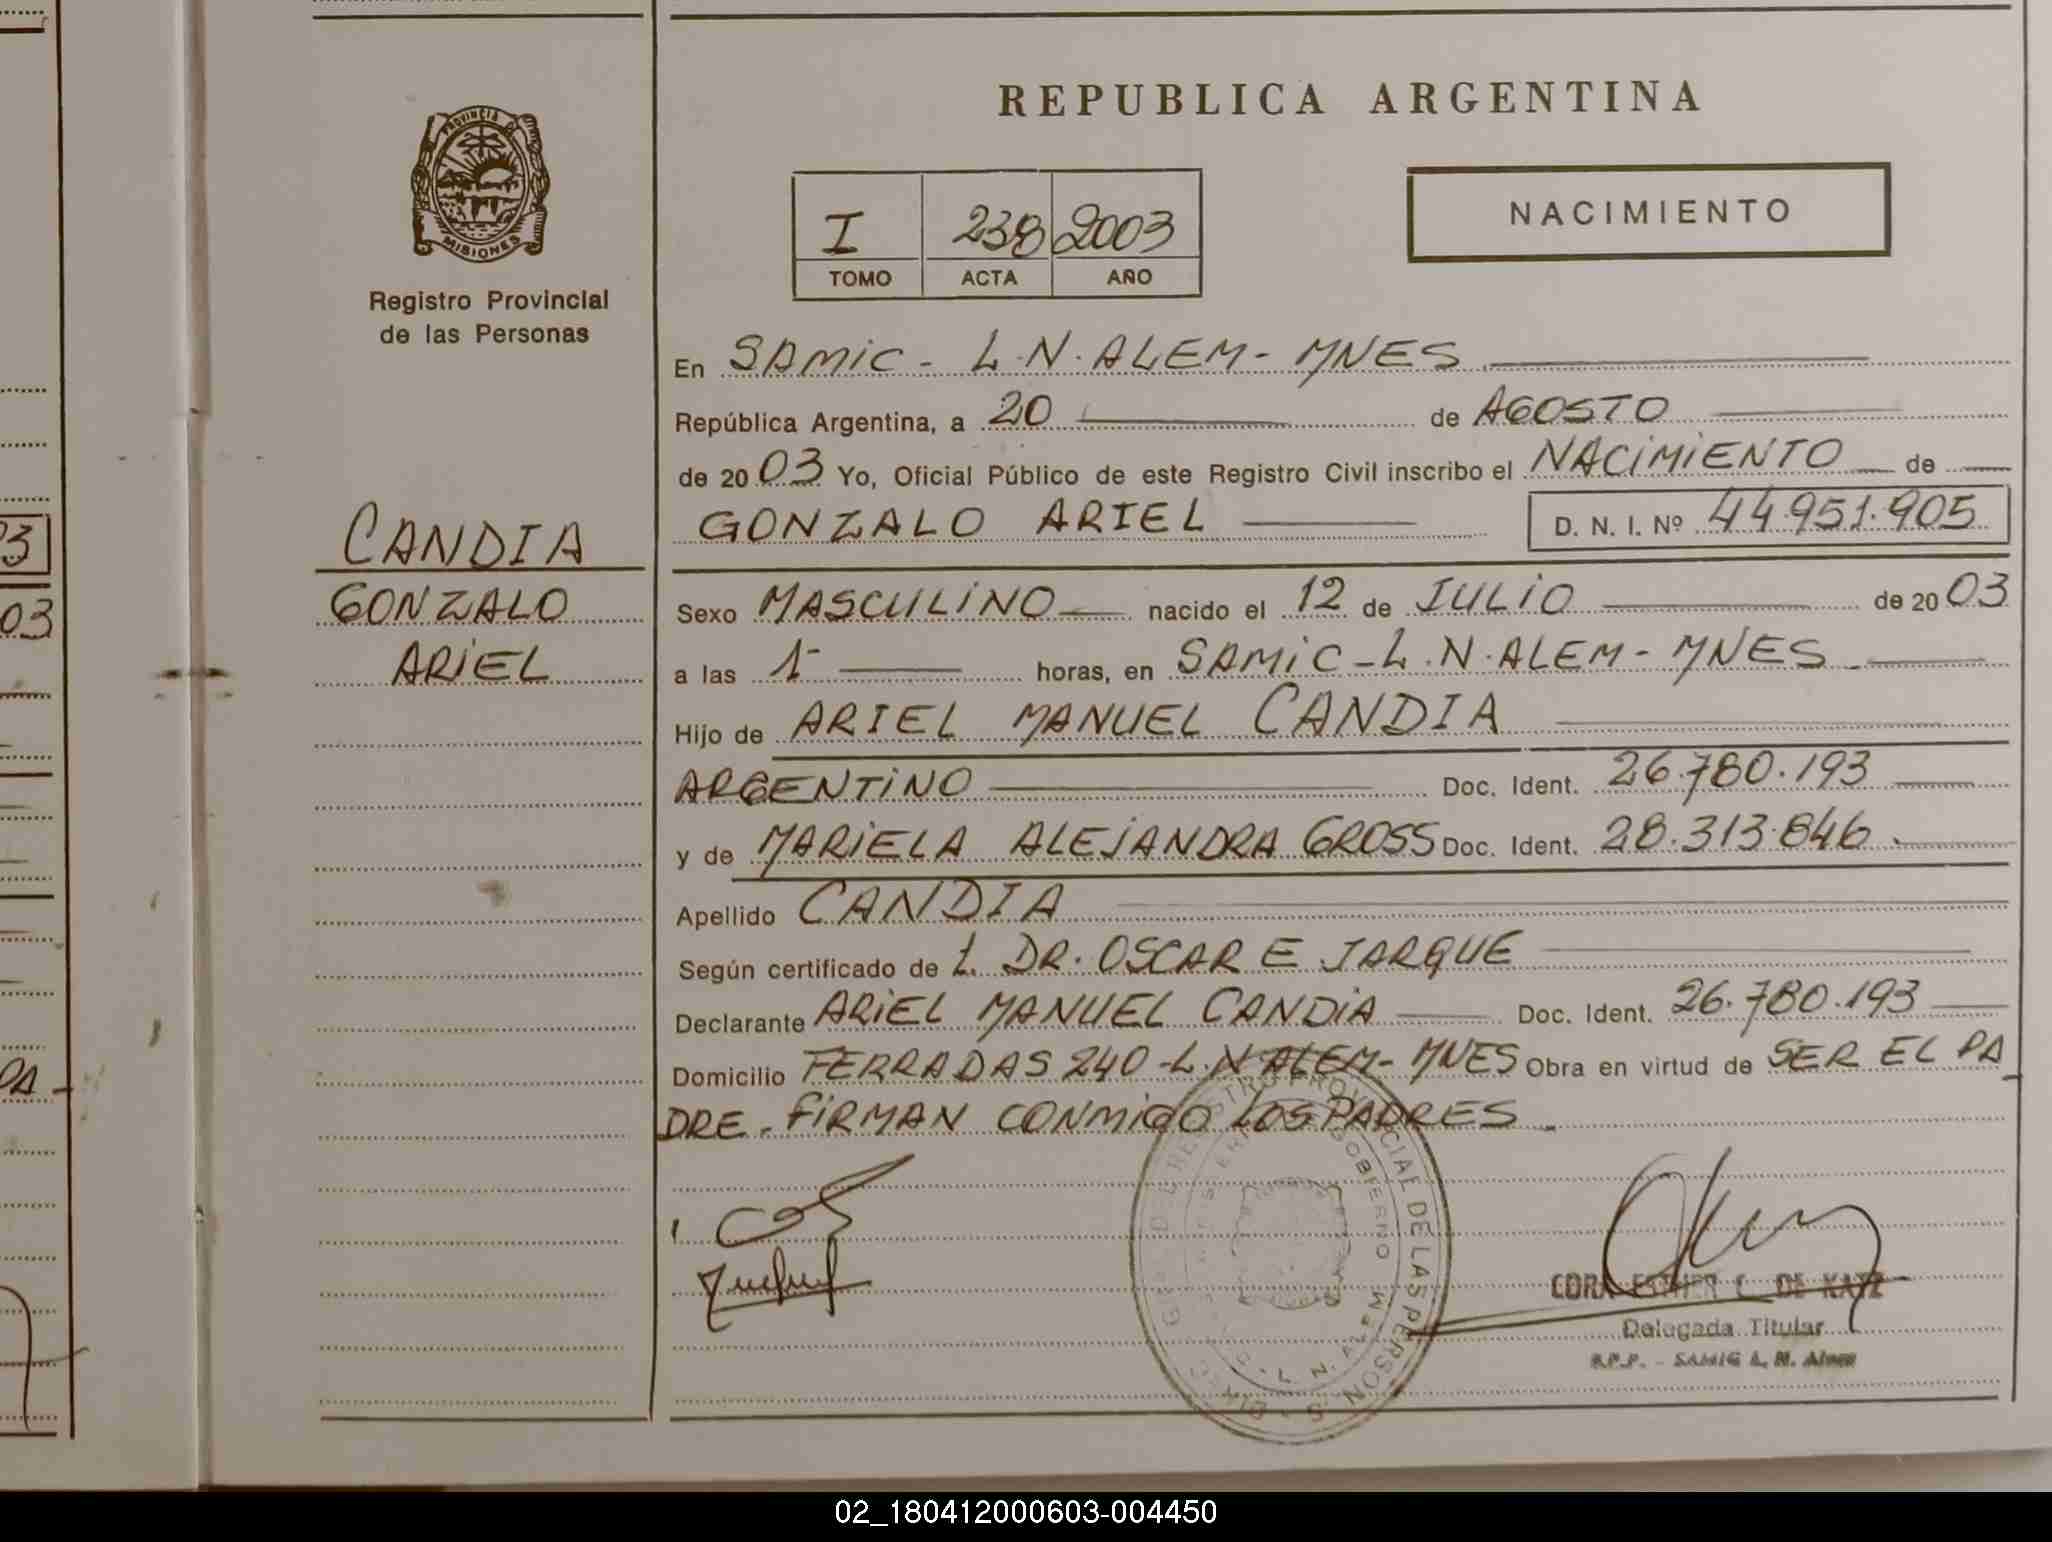 REPUBLICA ARGENTINA
PROVINCIA DE
MISIONES
Registro Provincial
de las Personas
I 238 2003
TOMO ACTA AÑO
NACIMIENTO
En SAMIC - L.N.ALEM - MNES
República Argentina, a 20 de AGOSTO
de 2003 Yo, Oficial Público de este Registro Civil inscribo el NACIMIENTO de
GONZALO ARIEL D. N. I. Nº 44.951.905
CANDIA
GONZALO
ARIEL
Sexo MASCULINO nacido el 12 de JULIO de 2003
a las 1- horas, en SAMIC - L.N.ALEM - MNES
Hijo de ARIEL MANUEL CANDIA
ARGENTINO Doc. Ident. 26.780.193
y de MARIELA ALEJANDRA GROSS Doc. Ident. 28.313.846
Apellido CANDIA
Según certificado de L. DR. OSCAR E JARQUE
Declarante ARIEL MANUEL CANDIA Doc. Ident. 26.780.193
Domicilio FERRADAS 240 - L.N ALEM - MNES Obra en virtud de SER EL PA
DRE. FIRMAN CONMIGO LOS PADRES.
REGISTRO PROVINCIAL DE LAS PERSONAS
GOBIERNO
L. N. ALEM
CORA ESTHER C. DE KATZ
Delegada Titular
R.P.P. - SAMIC L. N. Alem
3
03
03
PA -
02_180412000603-004450